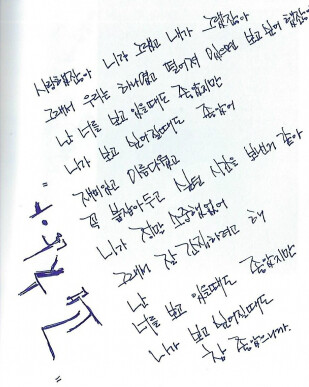 사랑했잖아 니가 그랬고 내가 그랬잖아
그래서 우리는 하나였고 떨어져 있으면 보고 싶어 했잖아
난 너를 보고 있을때도 좋았지만
니가 보고 싶어질때도 좋았어
재미있고 아름다웠고
꼭 붙잡아두고 싶던 시간을 보낸거 같아
니가 정말 소중했었어
그래서 잘 간직하려고 해
난
너를 보고 있을때도 좋았지만
니가 보고 싶어질때도
참 좋았으니까.